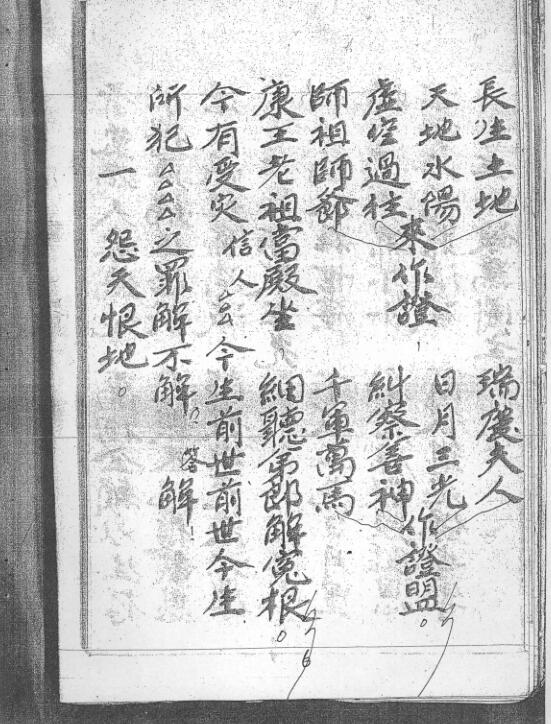 長生土地　瑞慶夫人
天地水陽　日月三光
虛空過往　糾察善神
來作證　作證盟。
師祖師爺　千軍萬馬
康王老祖當殿坐　細聽弟郎解冤根。
今有受災信人厶厶今生前世前世今生
所犯厶厶厶之罪解不解。答解
一　怨天恨地。